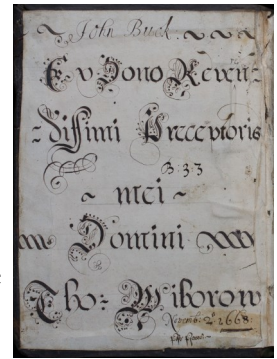 John Buck.
Ex Dono Reveren=
=dissimi Præceptoris
B. 33
~ mei ~
Domini
Tho= Wiborow
November 2d: 1668